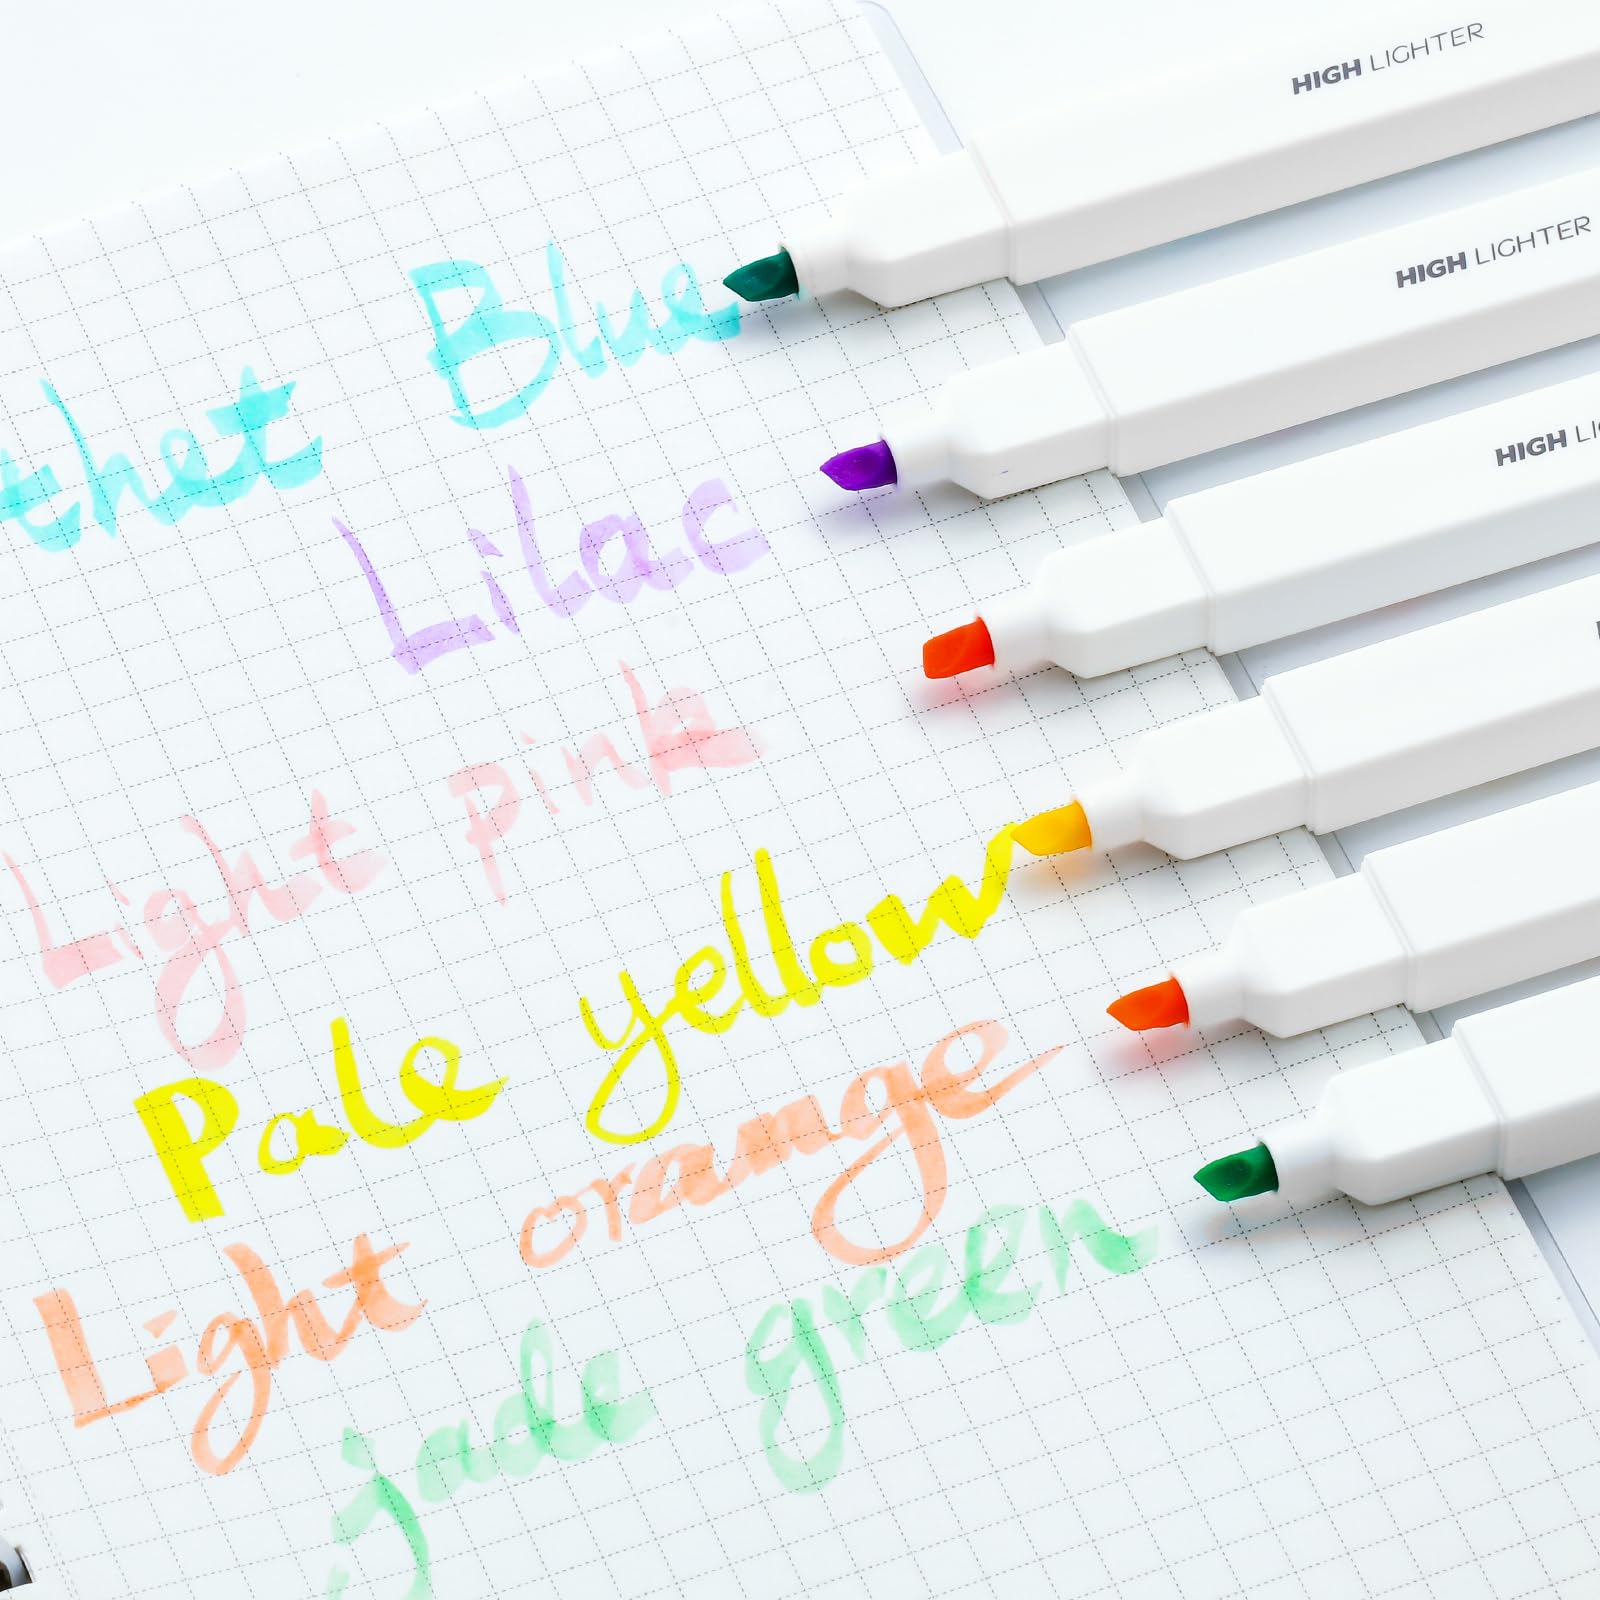 HIGH LIGHTER
HIGH LIGHTER
HIGH LI
thet Blue
Lilac
Light pink
Pale yellow
Light orange
jade green